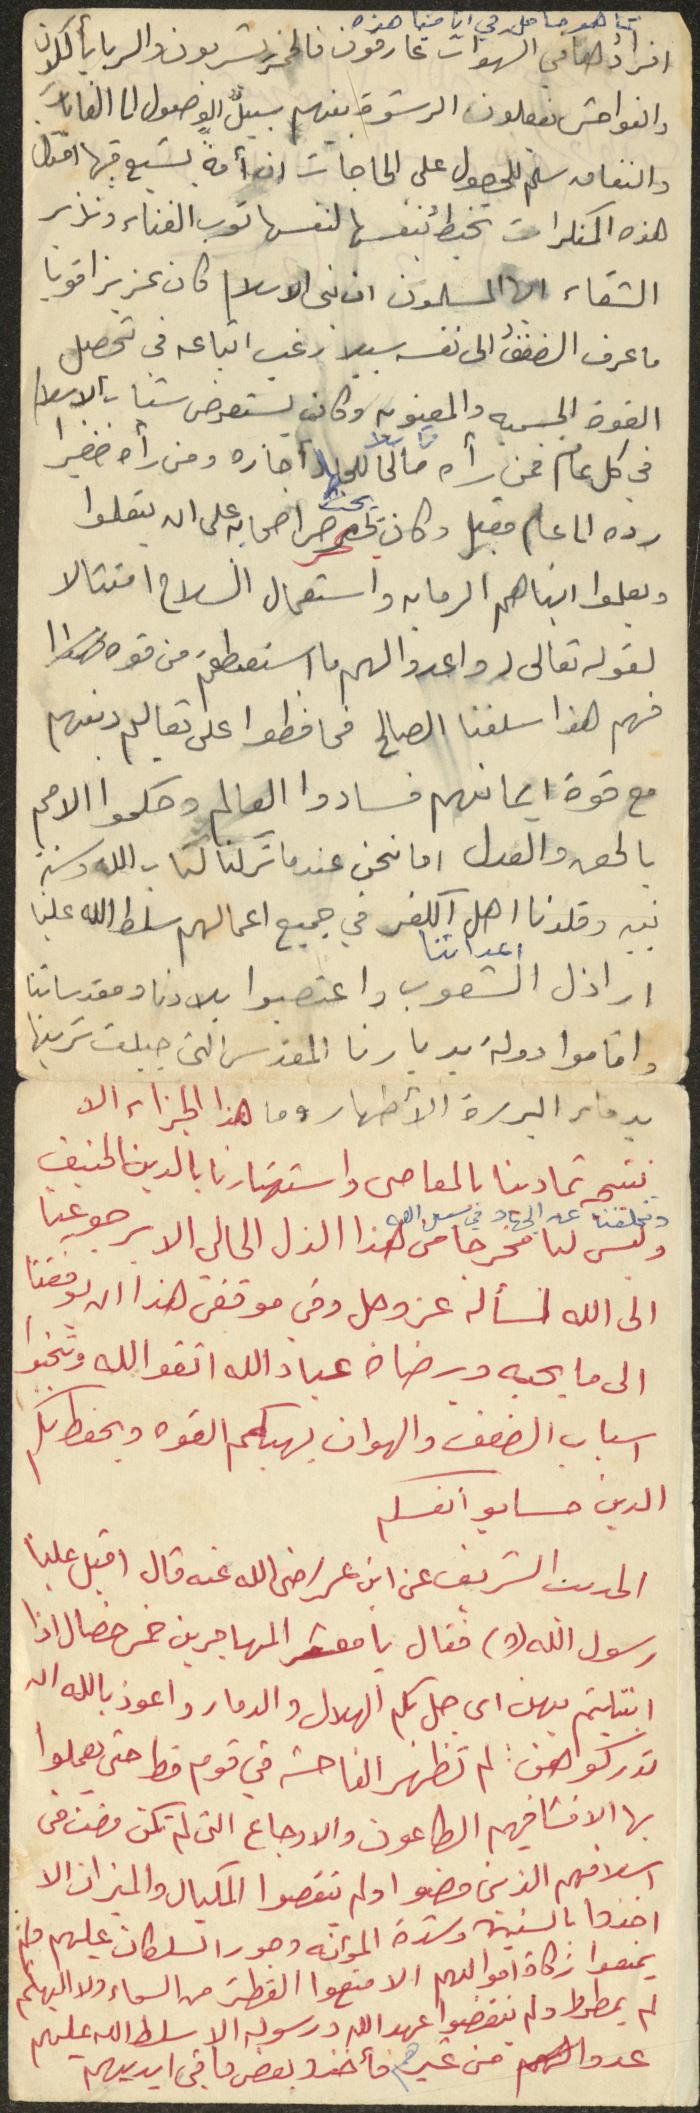 كما هو حاصل في ايامنا هذه
افرادها في الشهوات غارقون فالخمر يشربون والربا يأكلون
والفواحش يفعلون الرشوة بينهم سبيل الوصول الى الغايات
والنفاق سلم للحصول على الحاجات ان أمة يشيع فيها امثال
هذه المنكرات تخيط بنفسها لنفسها ثوب الفناء ونذير
الشقاء ايها المسلمون ان نبي الاسلام كان عزيزا قويا
ما عرف الضعف الى نفسه سبيلا رغب اتباعه في تحصيل
القوة الجسمية والمعنوية وكان يستعرض شباب الاسلام
في كل عام فمن رآه صالحا للجهاد أجازه ومن رأه صغيرا
رده الى عام مقبل وكان يحث اصحابه على ان يتعلموا
ويعلموا ابناءهم الرماية واستعمال السلاح امتثالا
لقوله تعالى (واعدوا لهم ما استطعتم من قوة)
فهم هذا سلفنا الصالح فحافظوا على تعاليم دينهم
مع قوة ايمانهم فسادوا العالم وحكموا الامم
بالحق والعدل اما نحن عندما تركنا كتاب الله وسنة
نبيه وقلدنا اهل الكفر في جميع اعمالهم سلط الله علينا
اعدائنا
اراذل الشعوب واغتصبوا بلادنا ومقدساتنا
واقاموا دولة بديارنا المقدس التي جبلت تربتها
بدماء البررة الأطهار وما هذا الجزاء الا
نتيجة تمادينا بالمعاصي واستهتارنا بالدين الحنيف
وتخلفنا عن الجهاد في سبيل الله
وليس لنا مخرجا من هذا الذل الحالي الا برجوعنا
الى الله لنسأله عز وجل وفي موقفي هذا ان يوفقنا
الى ما يحبه ويرضاه عباد الله اتقوا الله وتجنبوا
اسباب الضعف والهوان يهبكم القوة ويحفظ بكم
الدين حاسبوا أنفسكم
الحديث الشريف عن ابن عمر رضي الله عنه قال اقبل علينا
رسول الله (ص) فقال يا معشر المهاجرين خمس خصال اذا
ابتليتم بهن اي حل بكم الهلاك والدمار واعوذ بالله ان
تدركوهن: لم تظهر الفاحشة في قوم قط حتى يعملوا
بها الا فشا فيهم الطاعون والاوجاع التي لم تكن مضت في
اسلافهم الذين مضوا ولم ينقصوا المكيال والميزان الا
اخذوا بالسنين وشدة المؤنة وجور السلطان عليهم ولم
يمنعوا زكاة اموالهم الا منعوا القطر من السماء ولولا البهائم
لم يمطروا ولم ينقضوا عهد الله ورسوله الا سلط الله عليهم
عدوا من غيرهم فأخذ بعض ما في ايديهم